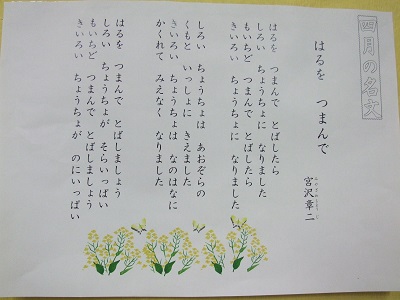 四月の名文
はるを つまんで
宮沢章二
はるを つまんで とばしたら
しろい ちょうちょに なりました
もいちど つまんで とばしたら
きいろい ちょうちょに なりました
しろい ちょうちょは あおぞらの
くもと いっしょに きえました
きいろい ちょうちょは なのはなに
かくれて みえなく なりました
はるを つまんで とばしましょう
しろい ちょうちょが そらいっぱい
もいちど つまんで とばしましょう
きいろい ちょうちょが のにいっぱい